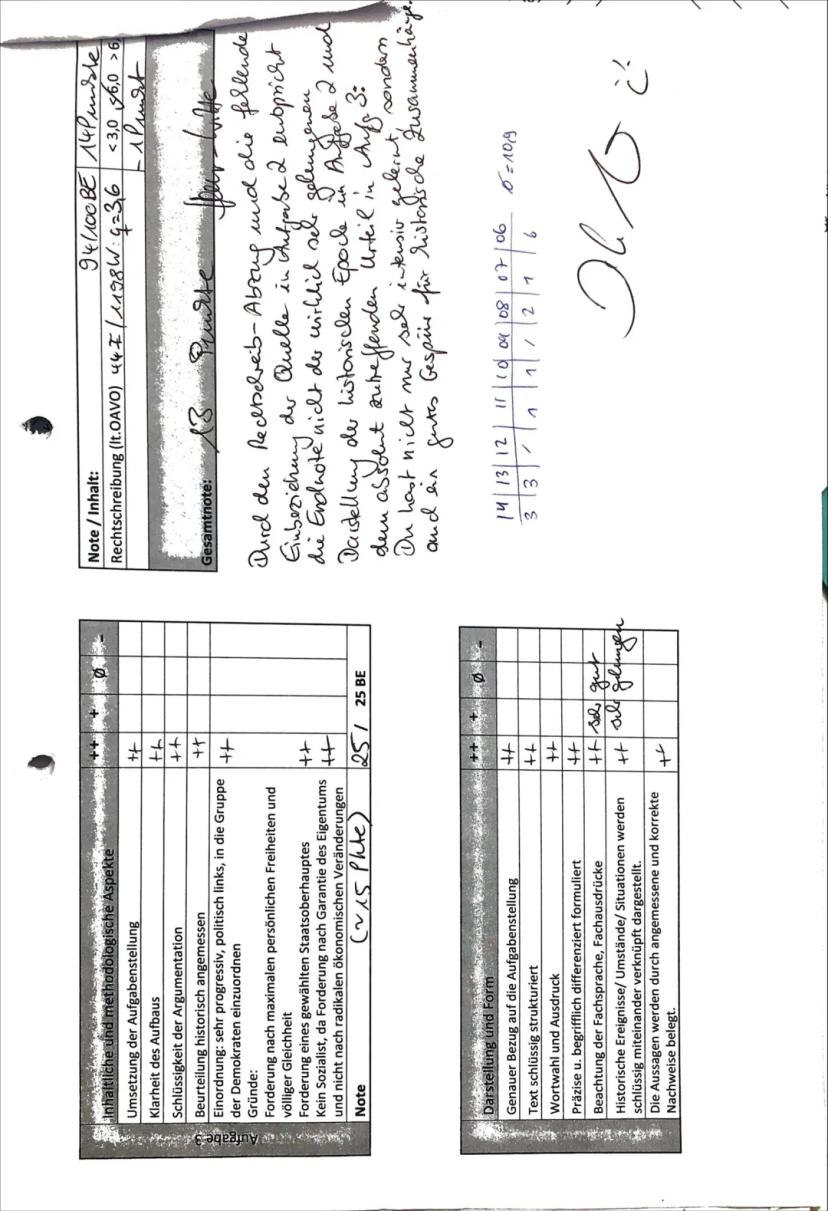 Inhaltliche und methodologische Aspekte ++ + ø -
Aufgabe 3
Umsetzung der Aufgabenstellung ++
Klarheit des Aufbaus ++
Schlüssigkeit der Argumentation ++
Beurteilung historisch angemessen ++
Einordnung: sehr progressiv, politisch links, in die Gruppe ++
der Demokraten einzuordnen
Gründe:
Forderung nach maximalen persönlichen Freiheiten und
völliger Gleichheit
Forderung eines gewählten Staatsoberhauptes ++
Kein Sozialist, da Forderung nach Garantie des Eigentums ++
und nicht nach radikalen ökonomischen Veränderungen
Note (~15 Pkte) 25/ 25 BE
Darstellung und Form ++ + ø -
Genauer Bezug auf die Aufgabenstellung ++
Text schlüssig strukturiert ++
Wortwahl und Ausdruck ++
Präzise u. begrifflich differenziert formuliert ++
Beachtung der Fachsprache, Fachausdrücke ++ sehr gut
Historische Ereignisse/ Umstände/ Situationen werden ++ sehr gelungen
schlüssig miteinander verknüpft dargestellt.
Die Aussagen werden durch angemessene und korrekte ++
Nachweise belegt.
Note / Inhalt: 94/100BE 14 Punkte
Rechtschreibung (lt.OAVO) 44 F/1198W: q=3,6 <3,0 <6,0 >6,
-1 Punkt
Gesamtnote: 13 Punkte
Durch den Rechtschreib-Abzug und die fehlende
Einbeziehung der Quelle in Aufgabe 2 entspricht
die Endnote nicht der wirklich sehr gelungenen
Darstellung der historischen Epoche in Aufgabe 2 und
dem absolut zutreffenden Urteil in Aufg. 3:
Du hast nicht nur sehr intensiv gelernt, sondern
auch ein gutes Gespür für historische Zusammenhänge.
14 | 13 | 12 | 11 | 10 | 09 | 08 | 07 | 06
3 | 3 | / | 1 | 1 | / | 2 | 1 | 6 ø=10,9